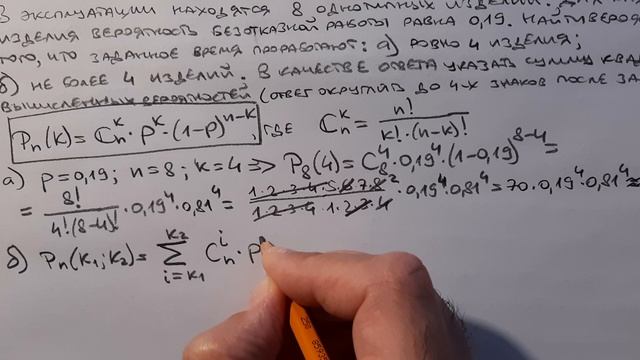 В ЭКСПЛУАТАЦИИ НАХОДЯТСЯ 8 ОДНОТИПНЫХ ИЗДЕЛИЙ.
ИЗДЕЛИЯ ВЕРОЯТНОСТЬ БЕЗОТКАЗНОЙ РАБОТЫ РАВНА 0,19. НАЙТИ
ТОГО, ЧТО ЗАДАННОЕ ВРЕМЯ ПРОРАБОТАЮТ: а) РОВНО 4 ИЗДЕЛИЯ;
б) НЕ БОЛЕЕ 4 ИЗДЕЛИЙ. В КАЧЕСТВЕ ОТВЕТА УКАЗАТЬ СУММУ
ВЫЧИСЛЕННЫХ ВЕРОЯТНОСТЕЙ (ОТВЕТ ОКРУГЛИТЬ ДО 4-Х ЗНАКОВ ПОСЛЕ
Pₙ(k) = Cₙᵏ · pᵏ · (1-p)ⁿ⁻ᵏ, ГДЕ Cₙᵏ = n!/(k!·(n-k)!)
а) p=0,19; n=8; k=4 => P₈(4) = C₈⁴ · 0,19⁴ · (1-0,19)⁸⁻⁴ =
= 8!/(4!·(8-4)!) · 0,19⁴ · 0,81⁴ = (1·2·3·4·5·6·7·8²)/(1·2·3·4·1·2·3·4) · 0,19⁴ · 0,81⁴ = 70 · 0,19⁴ · 0,81⁴ ≈
б) Pₙ(k₁; k₂) = Σ i=k₁ k₂ Cₙⁱ · p